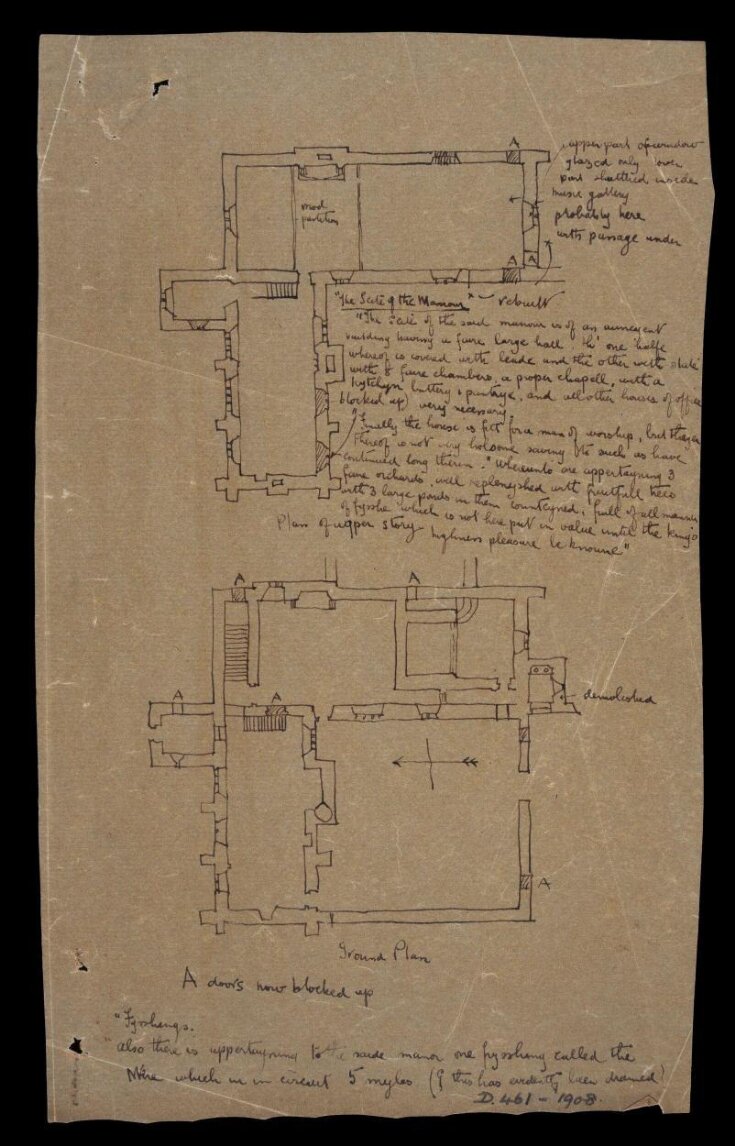 A
upper part of window
glazed only over
part shuttered inside
music gallery
probably here
with passage under
mod
partition
A
A
"The Scite of the Manour" rebuilt
"The Scite of the said manour is of an auncyent
building having a faire large hall th' one halfe
whereof is covered with leade and the other with slate
with 8 faire chambers, a proper chapell, with a
kytchyn buttery & pantrye, and all other houses of office
blocked up) very necessary.
"Finally the house is fitt for a man of worship, but the
thereof is not very holsome saving to such as have
continued long therein." "Whereunto are appertayning 3
faire orchards, well replenyshed with fruitfull trees
with 3 large ponds in them conteyned, full of all manner
of fysshe which is not here put in value until the kings
highness pleasure be knowne"
Plan of upper story
A
A
A
A
demolished
A
Ground Plan
A doors now blocked up
"Fysshengs.
also there is appertayning to the saide manor one fysshing called the
Mere which is in circuit 5 myles (? this has evidently been drained)
D.461-1908.